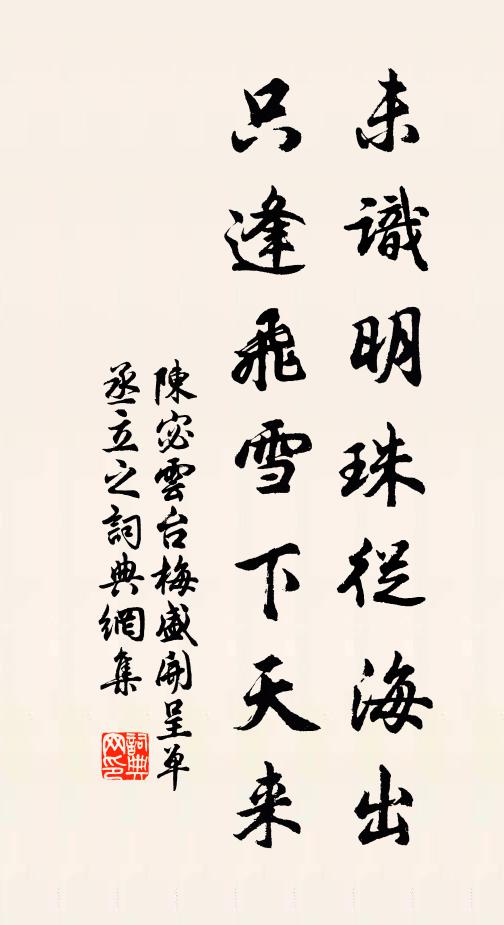 未識明珠從海出
只逢飛雪下天来
陳宓雲台梅盛開呈單
丞立之詞典網集
詞典
网印